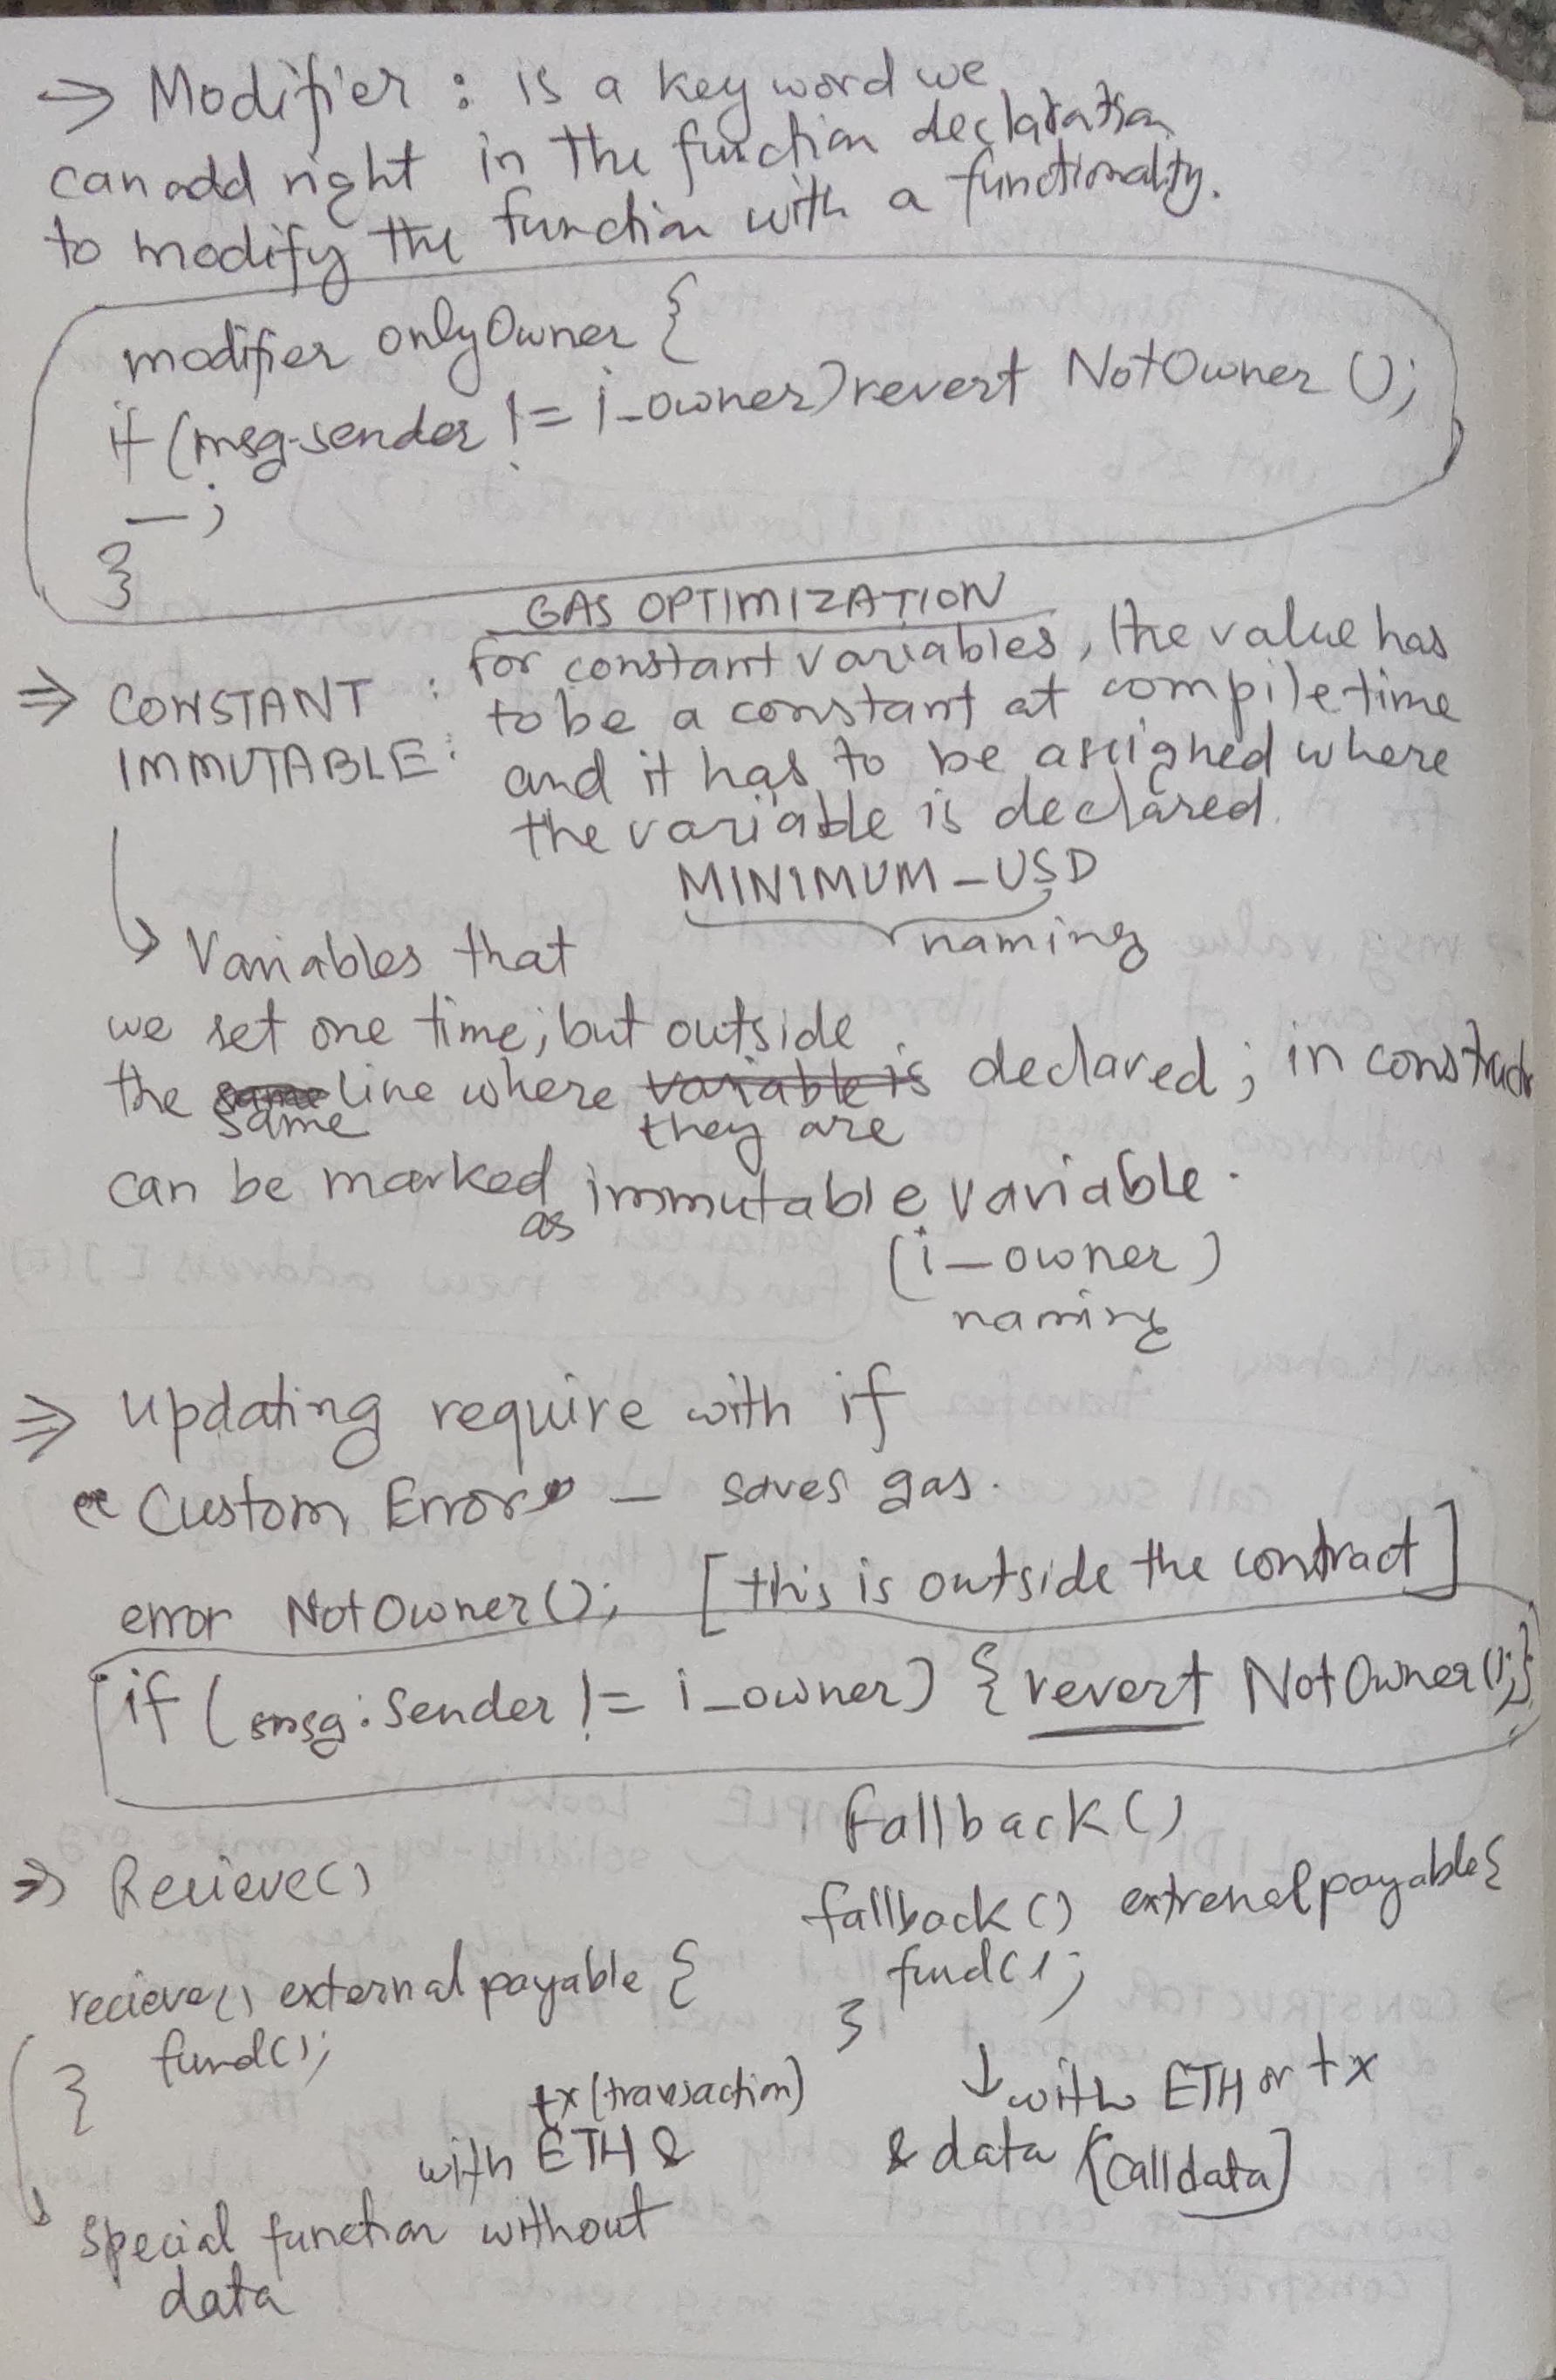 → Modifier : is a key word we
can add right in the function declaration
to modify the function with a functionality.
modifier onlyOwner {
if (msg.sender != i_owner) revert NotOwner ();
_;
}
GAS OPTIMIZATION
⇒ CONSTANT : for constant variables, the value has
to be a constant at compile time
IMMUTABLE : and it has to be assigned where
the variable is declared.
MINIMUM_USD
naming
↳ Variables that
we set one time; but outside
the same line where variable is declared; in constructor
same they are
can be marked as immutable variable.
(i_owner)
naming
⇒ Updating require with if
Custom Error – saves gas.
error NotOwner(); [this is outside the contract]
if (msg.sender != i_owner) { revert NotOwner();}
⇒ Recieve()
recieve() external payable {
fund();
}
tx (transaction)
with ETH &
special function without
data
fallback()
fallback() extrenal payable {
fund();
}
↓ with ETH or tx
& data [calldata]